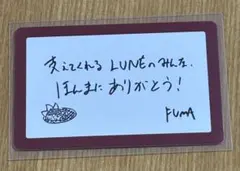 支えてくれる LUNEのみんな、
ほんまにありがとう！
FUMA